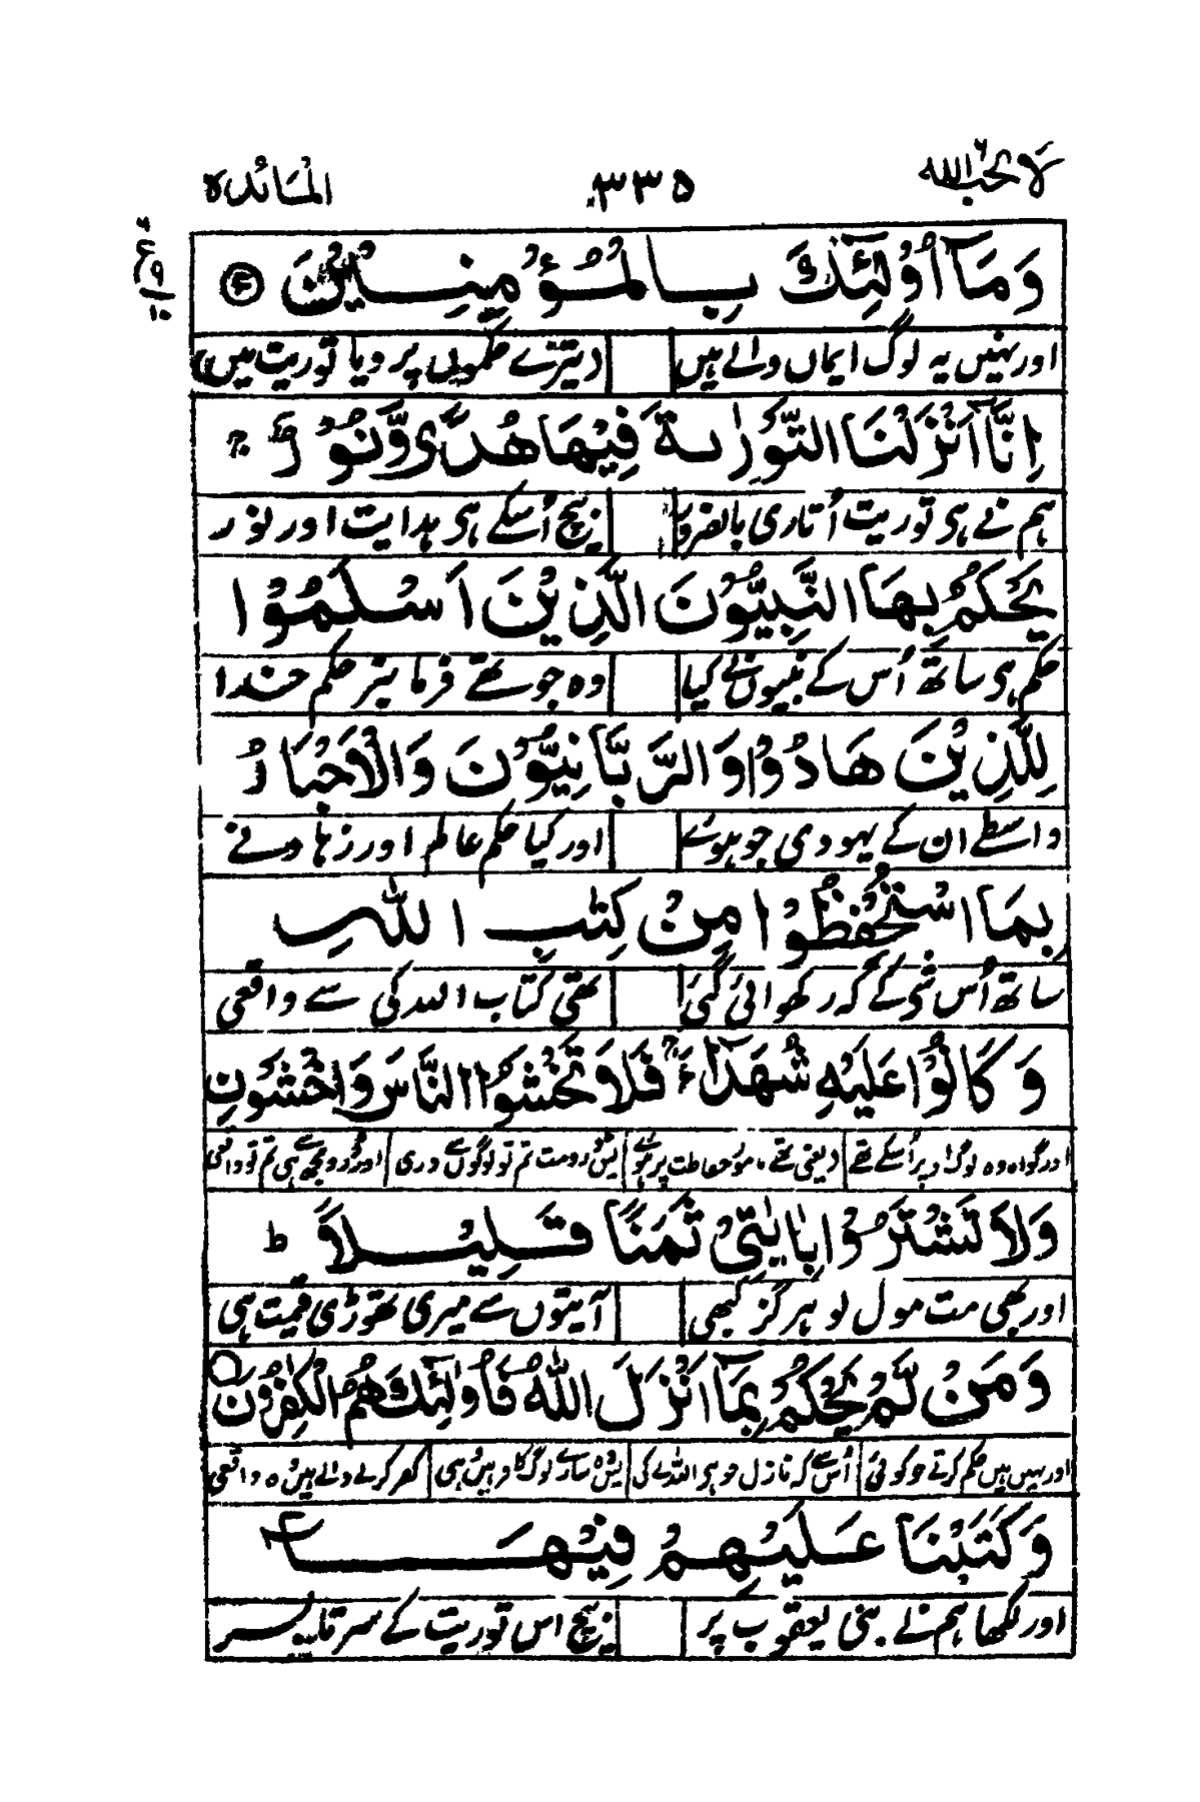 لا یحب اللہ ۳۳۵ المائدہ
ع ۹ ۱۰
وَمَآ اُولٰٓئِكَ بِالْمُؤْمِنِيْنَ
اور نہیں یہ لوگ ایماں والے ہیں حکموں پر ویا توریت میں)
اِنَّآ اَنْزَلْنَا التَّوْرٰىةَ فِيْهَا هُدًى وَّنُوْرٌ ۚ
ہم نے ہی توریت اُتاری بالضرور بیچ اُسکے ہی ہدایت اور نور
يَحْكُمُ بِهَا النَّبِيُّوْنَ الَّذِيْنَ اَسْلَمُوْا
حکم ہی ساتھ اُس کے نبیوں نے کیا وہ جو تھے فرما نبر حکم خدا
لِلَّذِيْنَ هَادُوْا وَالرَّبَّانِيُّوْنَ وَالْاَحْبَارُ
واسطے ان کے یہودی جو ہوئے اور کیا حکم عالم اور زہاد نے
بِمَا اسْتُحْفِظُوْا مِنْ كِتٰبِ اللّٰهِ
ساتھ اُس شی کے کہ رکھوائی گئی تھی کتاب اللہ کی سے واقعی
وَكَانُوْا عَلَيْهِ شُهَدَآءَ ۚ فَلَا تَخْشَوُا النَّاسَ وَاخْشَوْنِ
اور گواہ وہ لوگ اوپر اُسکے تھے (یعنی تھے مت تم تو لوگوں سے
وَلَا تَشْتَرُوْا بِاٰيٰتِيْ ثَمَنًا قَلِيْلًا ؕ
اور بھی مت مول لو ہرگز کبھی آیتوں سے میری تھوڑی قیمت ہی
وَمَنْ لَّمْ يَحْكُمْ بِمَآ اَنْزَلَ اللّٰهُ فَاُولٰٓئِكَ هُمُ الْكٰفِرُوْنَ
اور نہیں ہیں حکم کرتے جو کوئی اُس سے کہ نازل جو ہی اللہ نے کی لوگ کافر ہیں ہی کفر کرنے والے ہیں وہ واقعی
وَكَتَبْنَا عَلَيْهِمْ فِيْهَآ
اور لکھا ہم نے بنی یعقوب پر بیچ اس توریت کے